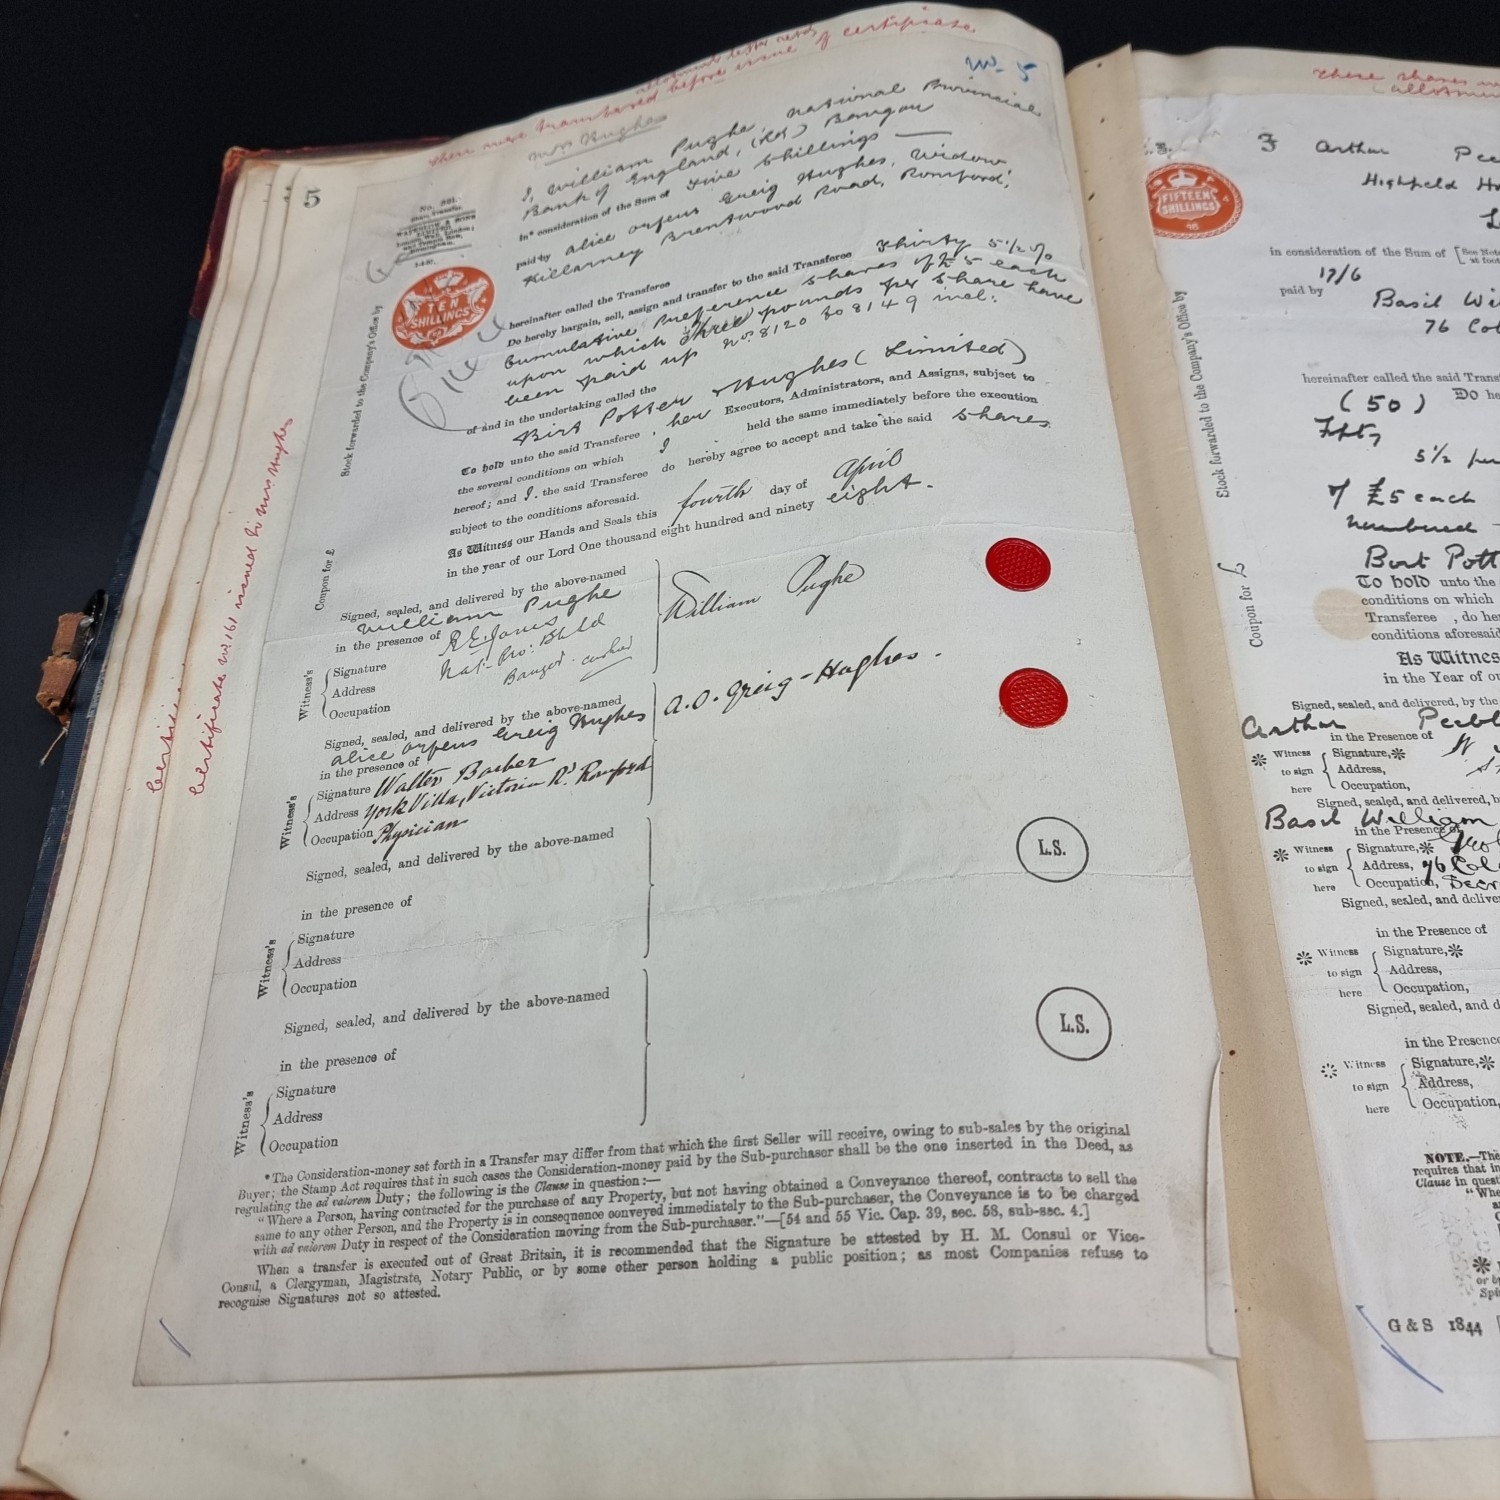 of certificate
these were transferred before issue
Mrs Hughes
No 5
5
I, William Pughe National Provincial
Bank of England, (Ld) Bangor
in* consideration of the Sum of Five Shillings —
paid by Alice Orfeus Greig Hughes, Widow,
Killarney Brentwood Road, Romford,
hereinafter called the Transferee
Do hereby bargain, sell, assign and transfer to the said Transferee Thirty 5½%
Cumulative Preference shares of £5 each
upon which Three pounds per share have
been paid up Nos. 8120 to 8149 incl:
of and in the undertaking called the
Birt Potter & Hughes (Limited)
To hold unto the said Transferee, her Executors, Administrators, and Assigns, subject to
the several conditions on which I held the same immediately before the execution
hereof; and I, the said Transferee do hereby agree to accept and take the said shares
subject to the conditions aforesaid.
As Witness our Hands and Seals this fourth day of April
in the year of our Lord One thousand eight hundred and ninety eight.
TEN
SHILLINGS
Stock forwarded to the Company's Office by
Coupon for £
Certificate No 161 issued to Mrs Hughes
Signed, sealed, and delivered by the above-named
William Pughe
in the presence of
Witness's
Signature R E Jones
Address Nat: Pro: Bk Ld
Occupation Bangor. cashier
William Pughe
Signed, sealed, and delivered by the above-named
Alice Orfeus Greig Hughes
in the presence of
Witness's
Signature Walter Barber
Address York Villa, Victoria Rd. Romford
Occupation Physician
A. O. Greig-Hughes.
Signed, sealed, and delivered by the above-named
in the presence of
Witness's
Signature
Address
Occupation
L.S.
Signed, sealed, and delivered by the above-named
in the presence of
Witness's
Signature
Address
Occupation
L.S.
*The Consideration-money set forth in a Transfer may differ from that which the first Seller will receive, owing to sub-sales by the original
Buyer; the Stamp Act requires that in such cases the Consideration-money paid by the Sub-purchaser shall be the one inserted in the Deed, as
regulating the ad valorem Duty; the following is the Clause in question:—
"Where a Person, having contracted for the purchase of any Property, but not having obtained a Conveyance thereof, contracts to sell the
same to any other Person, and the Property is in consequence conveyed immediately to the Sub-purchaser, the Conveyance is to be charged
with ad valorem Duty in respect of the Consideration moving from the Sub-purchaser."—[54 and 55 Vic. Cap. 39, sec. 58, sub-sec. 4.]
When a transfer is executed out of Great Britain, it is recommended that the Signature be attested by H. M. Consul or Vice-
Consul, a Clergyman, Magistrate, Notary Public, or by some other person holding a public position; as most Companies refuse to
recognise Signatures not so attested.
These shares
I Arthur
Highfield
FIFTEEN
SHILLINGS
in consideration of the Sum of
17/6
paid by Basil
76
hereinafter called the said
(50) Do
Fifty
5½ per
of £5 each
numbered
Birt
To hold unto the
conditions on which
Transferee , do
conditions
As Witness
in the Year of
Stock forwarded to the Company's Office by
Coupon for £
Signed, sealed, and delivered, by the
Arthur
in the Presence of
Witness to sign here
Signature,
Address,
Occupation,
Signed, sealed, and delivered,
Basil William
in the Presence of
Witness to sign here
Signature,
Address, 76
Occupation,
Signed, sealed, and
in the Presence of
Witness to sign here
Signature,
Address,
Occupation,
Signed, sealed, and
in the Presence
Witness to sign here
Signature,
Address,
Occupation,
NOTE.—The
requires that in
Clause in
G & S 1844